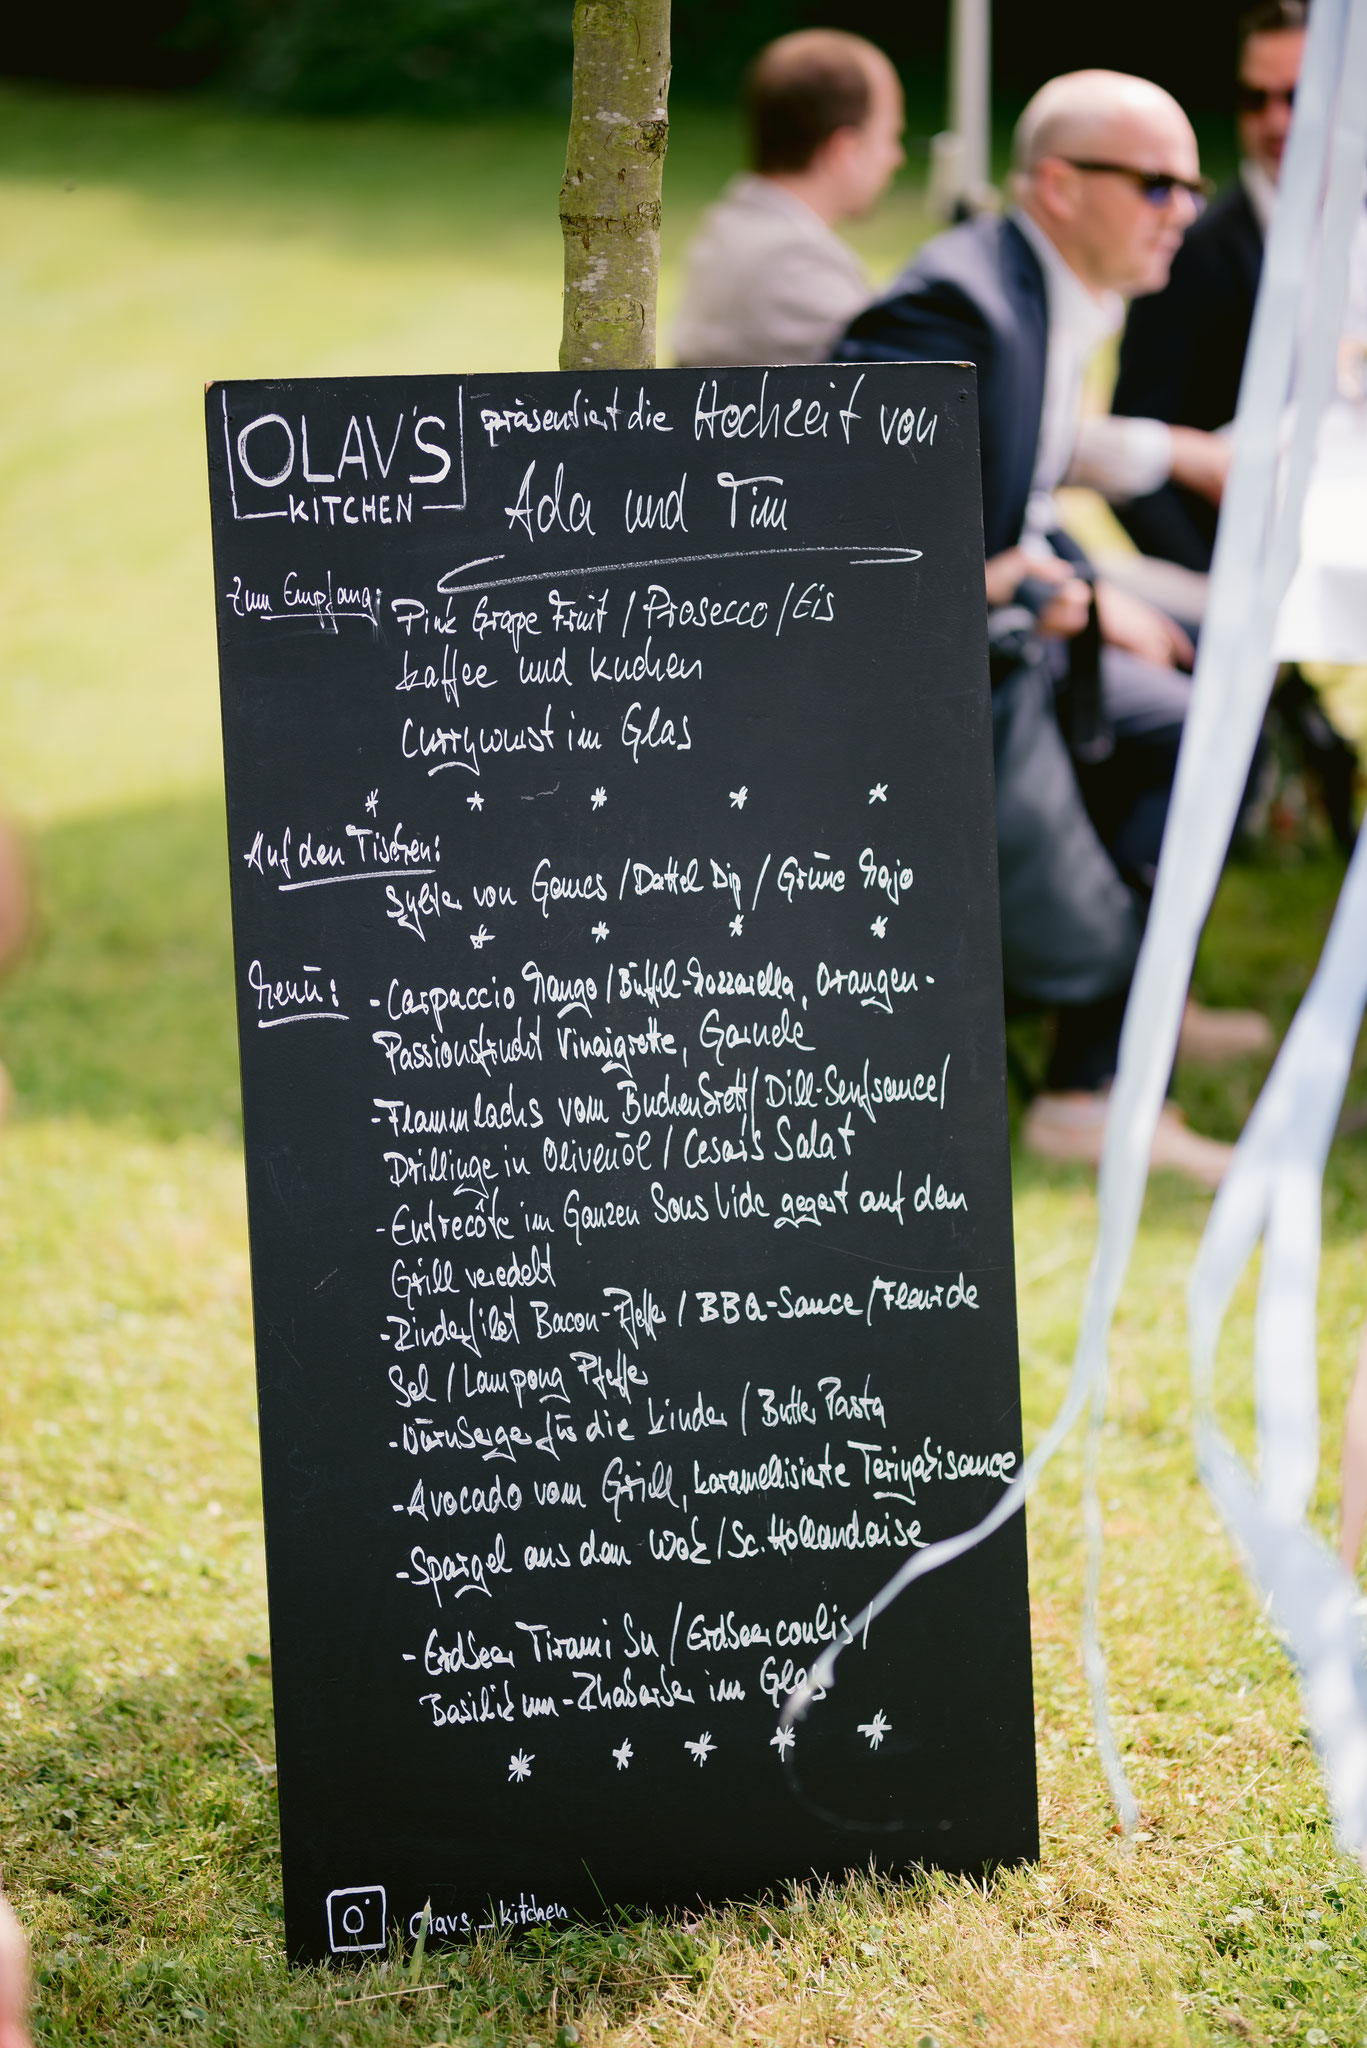 OLAV'S
KITCHEN
präsentiert die Hochzeit von
Ada und Tim
Zum Empfang:
Pink Grape Fruit / Prosecco / Eis
Kaffee und Kuchen
Currywurst im Glas
* * * * *
Auf den Tischen:
Sylter von Gomes / Dattel Dip / Grüne Mojo
* * * *
Menü:
- Carpaccio Mango / Büffel-Mozzarella, Orangen-
Passionsfrucht Vinaigrette, Garnele
- Flammlachs vom Buchenbrett / Dill-Senfsauce /
Drillinge in Olivenöl / Cesars Salat
- Entrecôte im Ganzen Sous Vide gegart auf dem
Grill veredelt
- Rinderfilet Bacon-Pfeffer / BBQ-Sauce / Fleur de
Sel / Lampong Pfeffer
- Nürnberger für die Kinder / Butter Pasta
- Avocado vom Grill, karamellisierte Teriyakisauce
- Spargel aus dem Wok / Sc. Hollandaise
- Erdbeer Tirami Su / Erdbeercoulis /
Basilikum-Rhabarber im Glas
* * * * *
olavs_kitchen